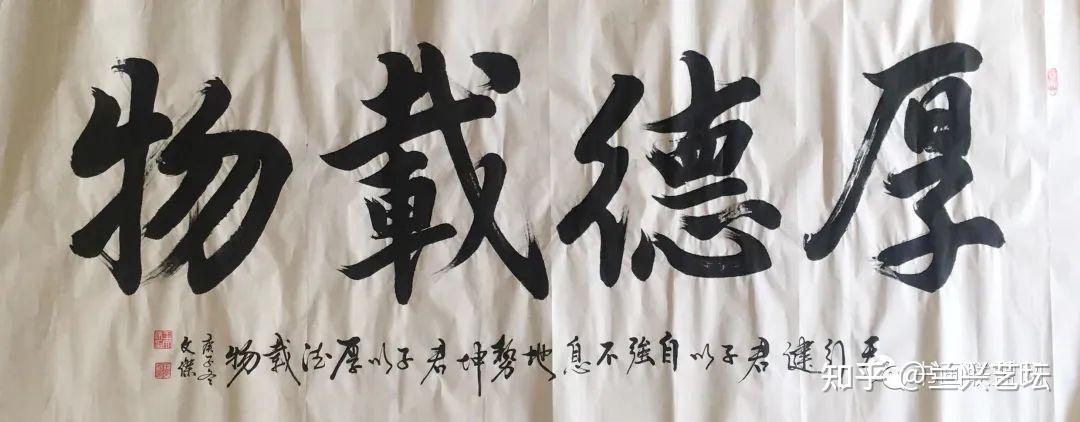 厚德載物
天行健君子以自強不息地勢坤君子以厚德載物
庚子冬
文傑
知乎 @萱兴艺坛